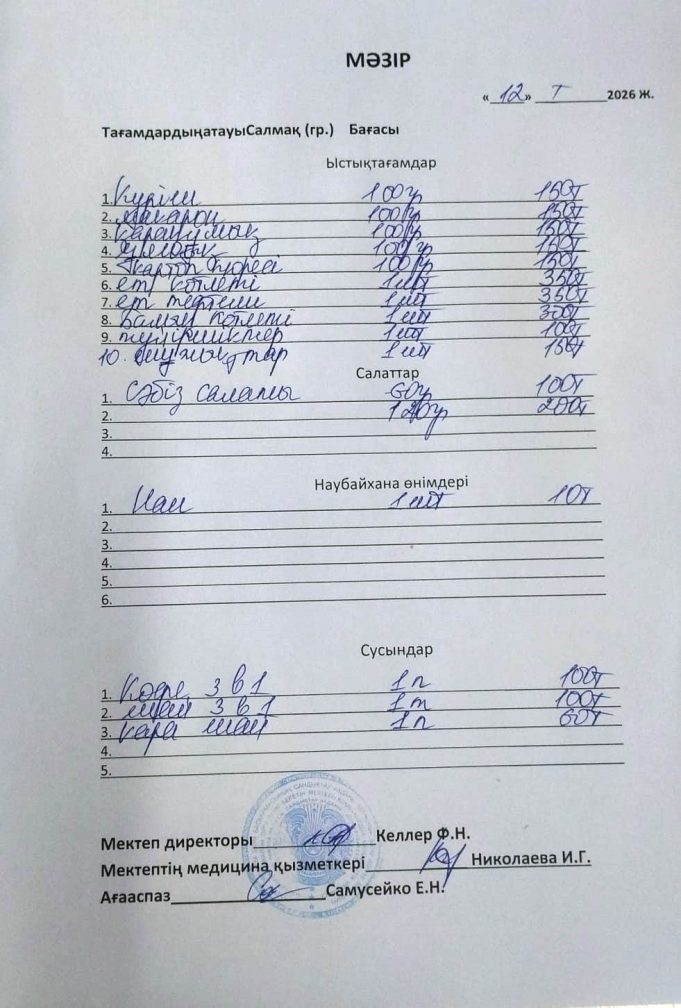 МӘЗІР
«12» I 2026 Ж.
ТағамдардыңатауыСалмақ (гр.) Бағасы
Ыстықтағамдар
1. Күріш 100гр 150т
2. макарон 100гр 150т
3. қарақұмық 100гр 150т
4. 100гр 150т
5. картоп пюресі 100гр 150т
6. ет котлеті 1шт 350т
7. ет тефтели 1шт 350т
8. балық котлеті 1шт 300т
9. 1шт 100т
10. шұжықтар 1шт 150т
Салаттар
1. Сәбіз салаты 60гр 100т
2. 120гр 200т
3.
4.
Наубайхана өнімдері
1. Нан 1шт 10т
2.
3.
4.
5.
6.
Сусындар
1. Кофе 3 в 1 1п 100т
2. шай 3 в 1 1п 100т
3. кара шай 1п 60т
4.
5.
Мектеп директоры Келлер Ф.Н.
Мектептің медицина қызметкері Николаева И.Г.
Ағааспаз Самусейко Е.Н.